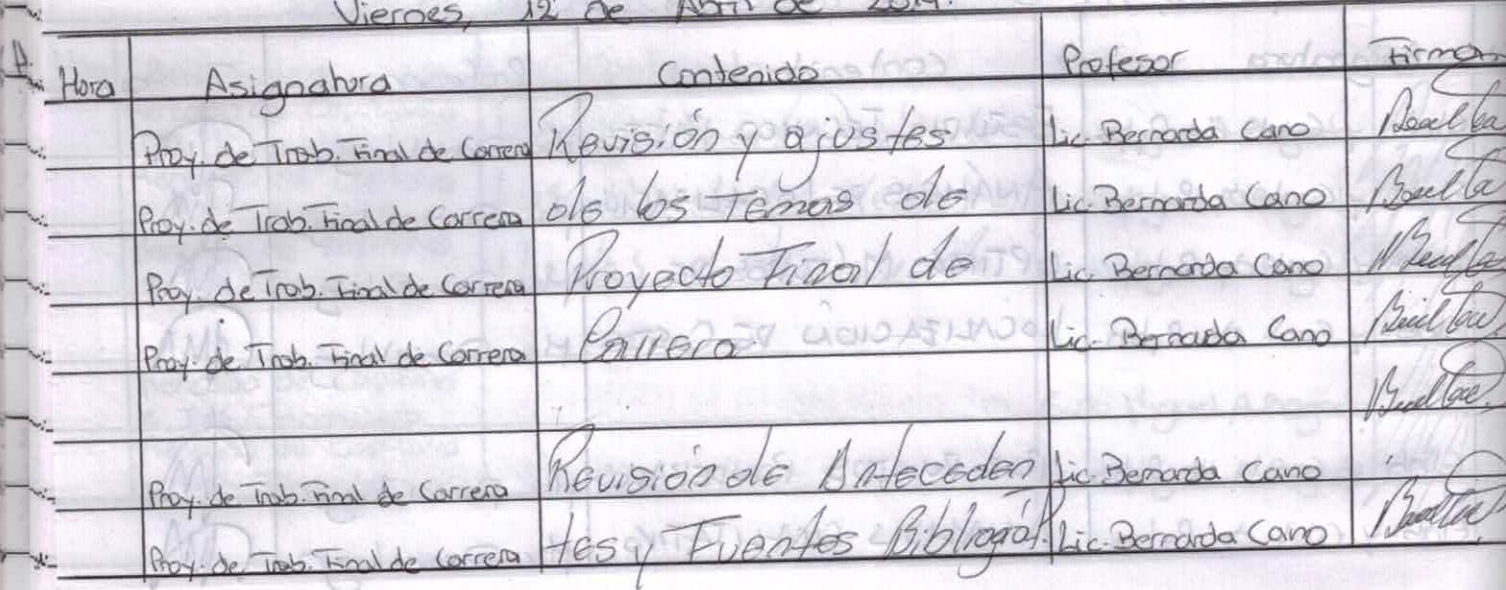 Viernes, 12 de Abril de 2019.
Hora Asignatura Contenido Profesor Firma
Proy. de Trab. Final de Carrera Revisión y ajustes Lic. Bernarda Cano
Proy. de Trab. Final de Carrera de los temas de Lic. Bernarda Cano
Proy. de Trab. Final de Carrera Proyecto Final de Lic. Bernarda Cano
Proy. de Trab. Final de Carrera Carrera Lic. Bernarda Cano
Proy. de Trab. Final de Carrera Revisión de Anteceden Lic. Bernarda Cano
Proy. de Trab. Final de Carrera tes y Fuentes Bibliogáf. Lic. Bernarda Cano